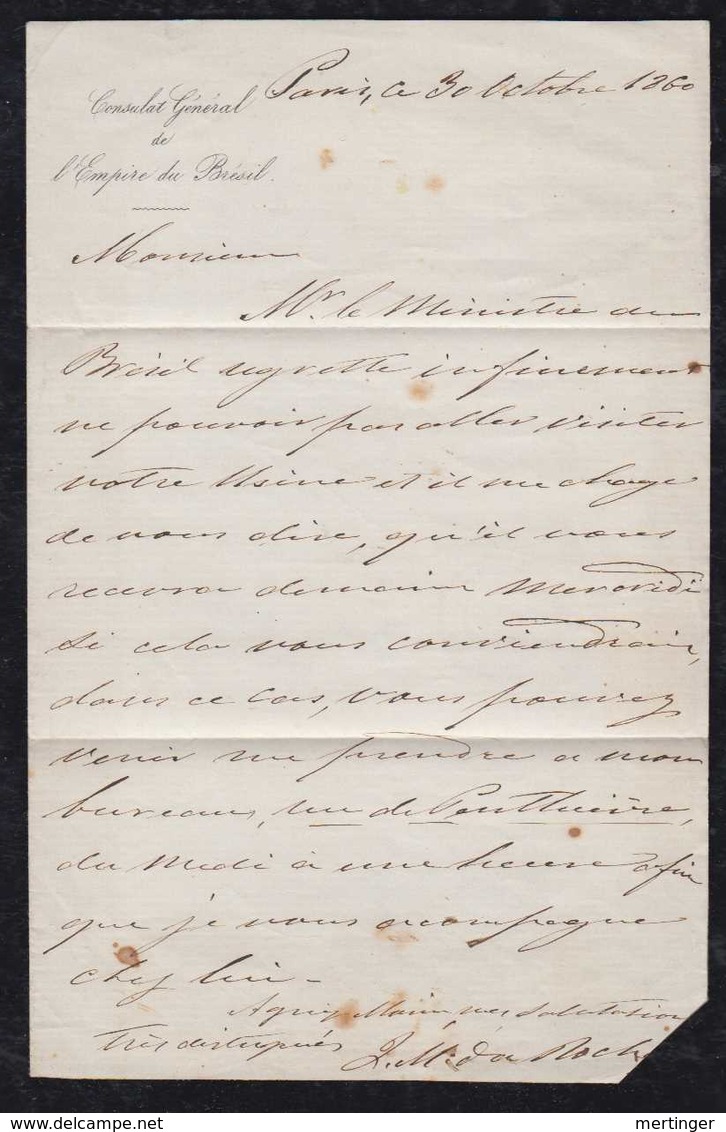 Consulat Général
de
l'Empire du Brésil.
Paris, ce 30 Octobre 1860
Monsieur
Mr. le Ministre du
Brésil regrette infiniment
ne pouvoir pas aller visiter
votre Usine et il me charge
de vous dire, qu'il vous
recevra demain Mercredi
si cela vous conviendrait,
dans ce cas, vous pouvez
venir me prendre a mon
bureau, rue de Penthièvre,
du Midi à une heure afin
que je vous accompagne
chez lui -
Agréez, mes Salutations
très distingués
J. M. da Roch
mertinger